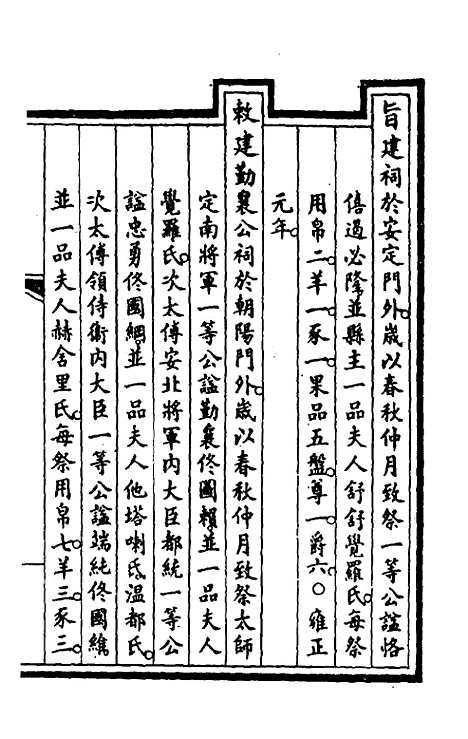 旨建祠於安定門外。歲以春秋仲月致祭一等公諡恪
僖過必隆並縣主一品夫人舒舒覺羅氏。每祭
用帛二。羊一。豕一。果品五盤。尊一。爵六。○雍正
元年。
敕建勤襄公祠於朝陽門外。歲以春秋仲月致祭太師
定南將軍一等公諡勤襄佟圖賴並一品夫人
覺羅氏。次太傅安北將軍內大臣都統一等公
諡忠勇佟國綱並一品夫人他塔喇氏溫都氏。
次太傅領侍衛內大臣一等公諡端純佟國維
並一品夫人赫舍里氏。每祭用帛七。羊三。豕三。